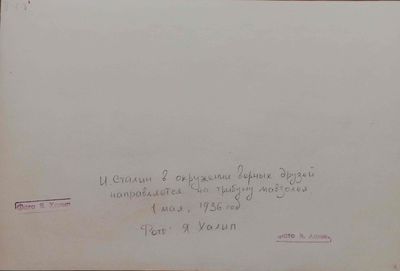 И. Сталин в окружении верных друзей
направляется на трибуну мавзолея
1 мая, 1936 год
Фото: Я Халип
Фото Я. Халип
Фото Я. Халип